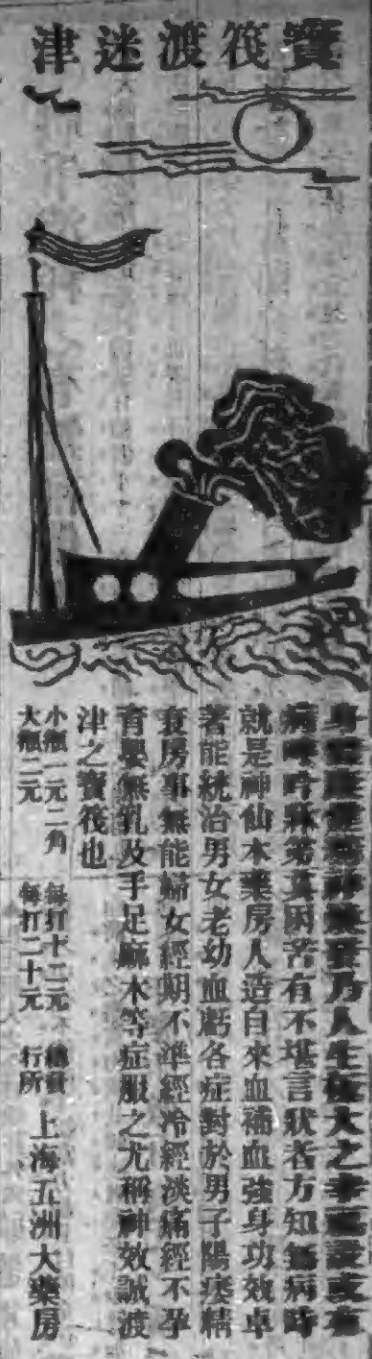 寶筏渡迷津
身體康健精神煥發乃人生極大之幸福設或有
病呻吟牀笫眞困苦有不堪言狀者方知無病時
就是神仙本藥房人造自來血補血强身功效卓
著能統治男女老幼血虧各症對於男子陽痿精
衰房事無能婦女經期不準經冷經淡痛經不孕
育嬰無乳及手足麻木等症服之尤稱神效誠渡
津之寶筏也
小瓶一元二角 每打十二元
大瓶二元 每打二十元
總發
行所
上海五洲大藥房